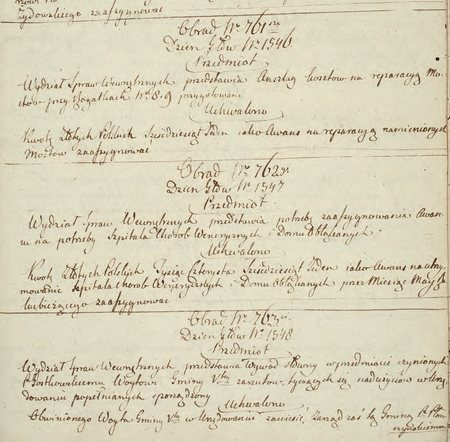 żydowskiego zaassygnować
Obrad Nr 761szy
Dzien: Głów: Nr 1546
Przedmiot
Wydział Spraw Wewnętrznych przedstawia Anszlag kosztów na reparacyą Mo-
stów przy Rogatkach Nr 8 i 9 przygotowany
Uchwalono
Kwotę Złotych Polskich Sześćdziesiąt Jeden jako Awans na reparacyą namienionych
Mostów zaassygnować
Obrad Nr 762gi
Dzien: Głów: Nr 1547
Przedmiot
Wydział Spraw Wewnętrznych przedstawia potrzebę zaassygnowania Awan-
su na potrzeby Szpitala Chorób Wenerycznych i Domu Obłąkanych
Uchwalono
Kwotę Złotych Polskich Tysiąc Czterysta Sześćdziesiąt Jeden jako Awans na utrzy-
mowanie Szpitala chorob Wenerycznych i Domu Obłąkanych przez Miesiąc Maj
zaassygnować
Obrad Nr 763ci
Dzien: Głów: Nr 1548
Przedmiot
Wydział Spraw Wewnętrznych przedstawia Wywod Słowny w przedmiocie czynionych
Wóytowi Gminy zarzutow, tyczących się nadużyciow w Urzę-
dowaniu popełnianych sporządzony
Uchwalono
Obwinionego Wóyta Gminy w Urzędowaniu zawiesić, Zarząd zaś tą Gminą